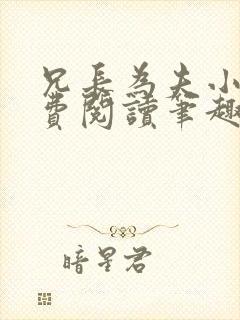 兄長為夫小
費閱讀筆趣
暗星君